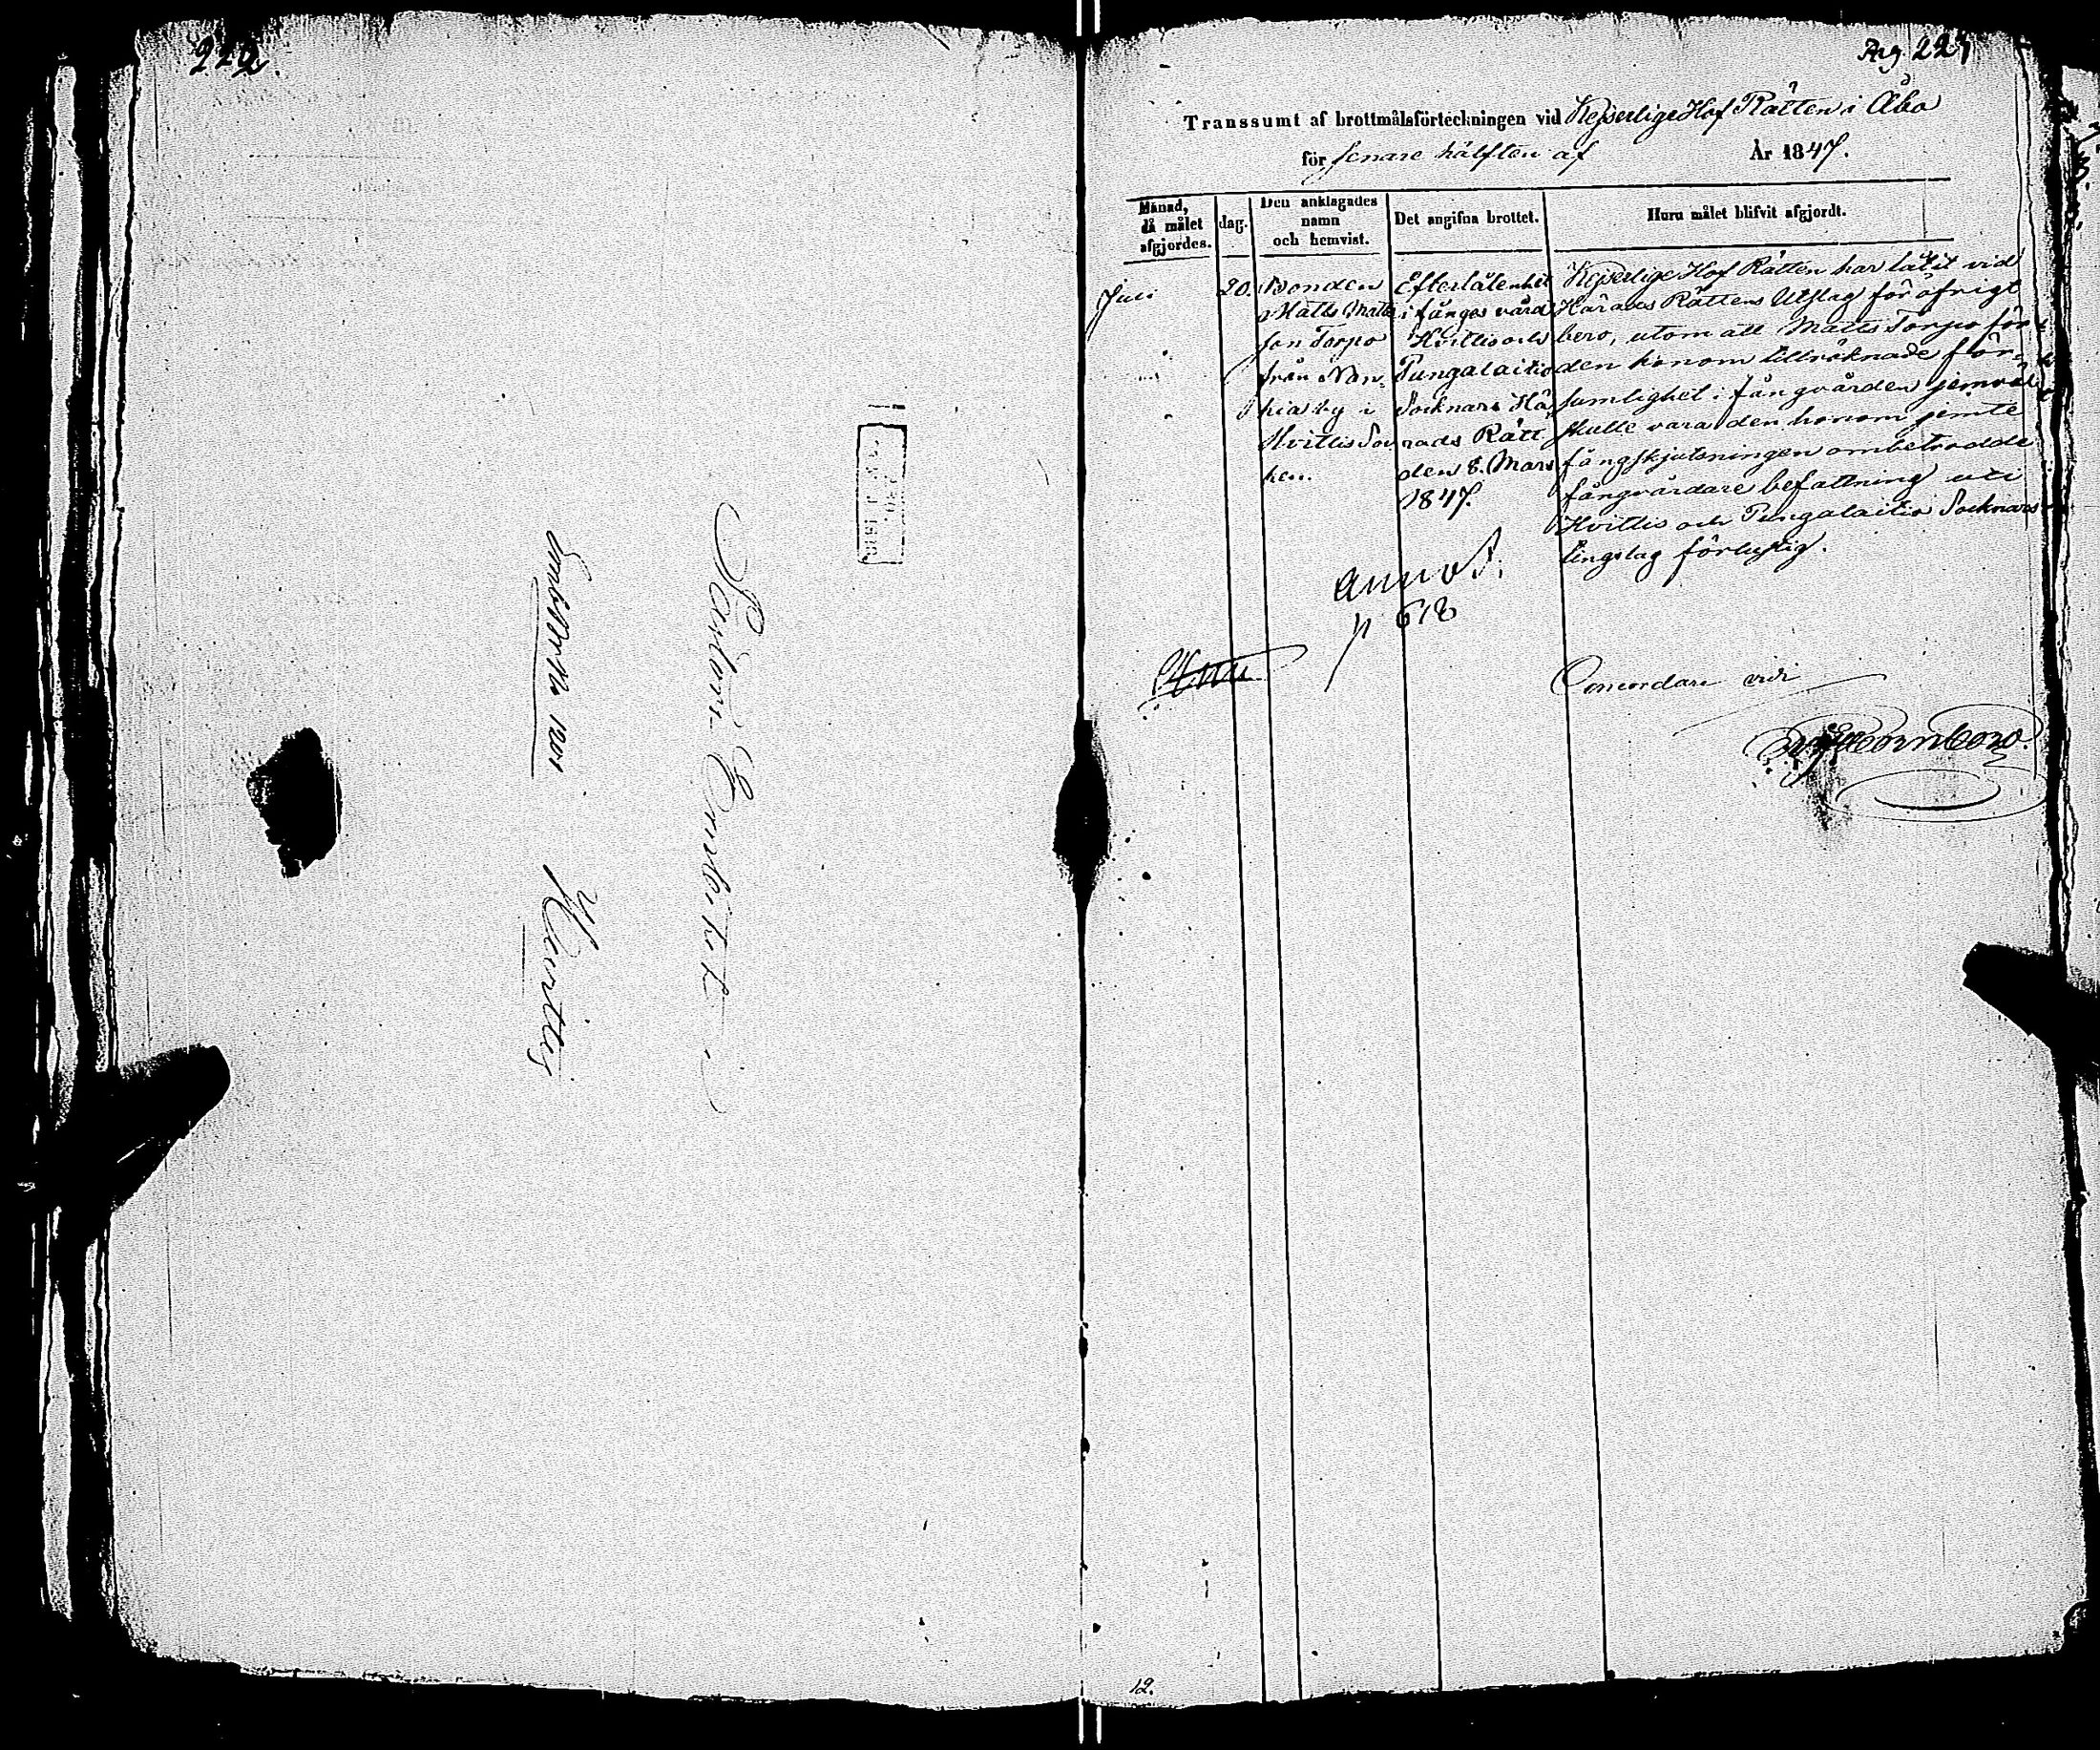 222.
Pastors Embetet
Hvittis
Pag 227
Transsumt af brottmålsförteckningen vid Kejserlige Hof Rätten i Åbo
för senare hälften af År 1847.
Månad, då målet afgjordes.
dag.
Den anklagades namn och hemvist.
Det angifna brottet.
Huru målet blifvit afgjordt.
Juli
20.
Bonden
Matts Matts
son Torpo
från
kia by i
Hvittis Soc
ken.
Efterlåtenhet
i fånges vård
Hvittis och
Pungalaitio
Socknars Hä
rads Rätt
den 8. Mars
1847.
Kejserlige Hof Rätten har låtit vid
Härads Rättens Utslag för öfrigt
bero, utom att Matts Torpo för
den honom tillräknade för-
sumlighet i fångvården jemväl
skulle vara den honom jemte
fångskjutsningen ombetrodde
fångvårdare befattning uti
Hvittis och Pungalaitio Socknars
tingslag förlustig.
Annot.
p 618
Concordare vidi
12.